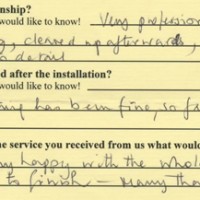 nship?
would like to know! Very profession
g, cleared up afterwards,
to detail
d after the installation?
would like to know!
ing has been fine, so fa
he service you received from us what woul
ny happy with the whole
to finish — many tha